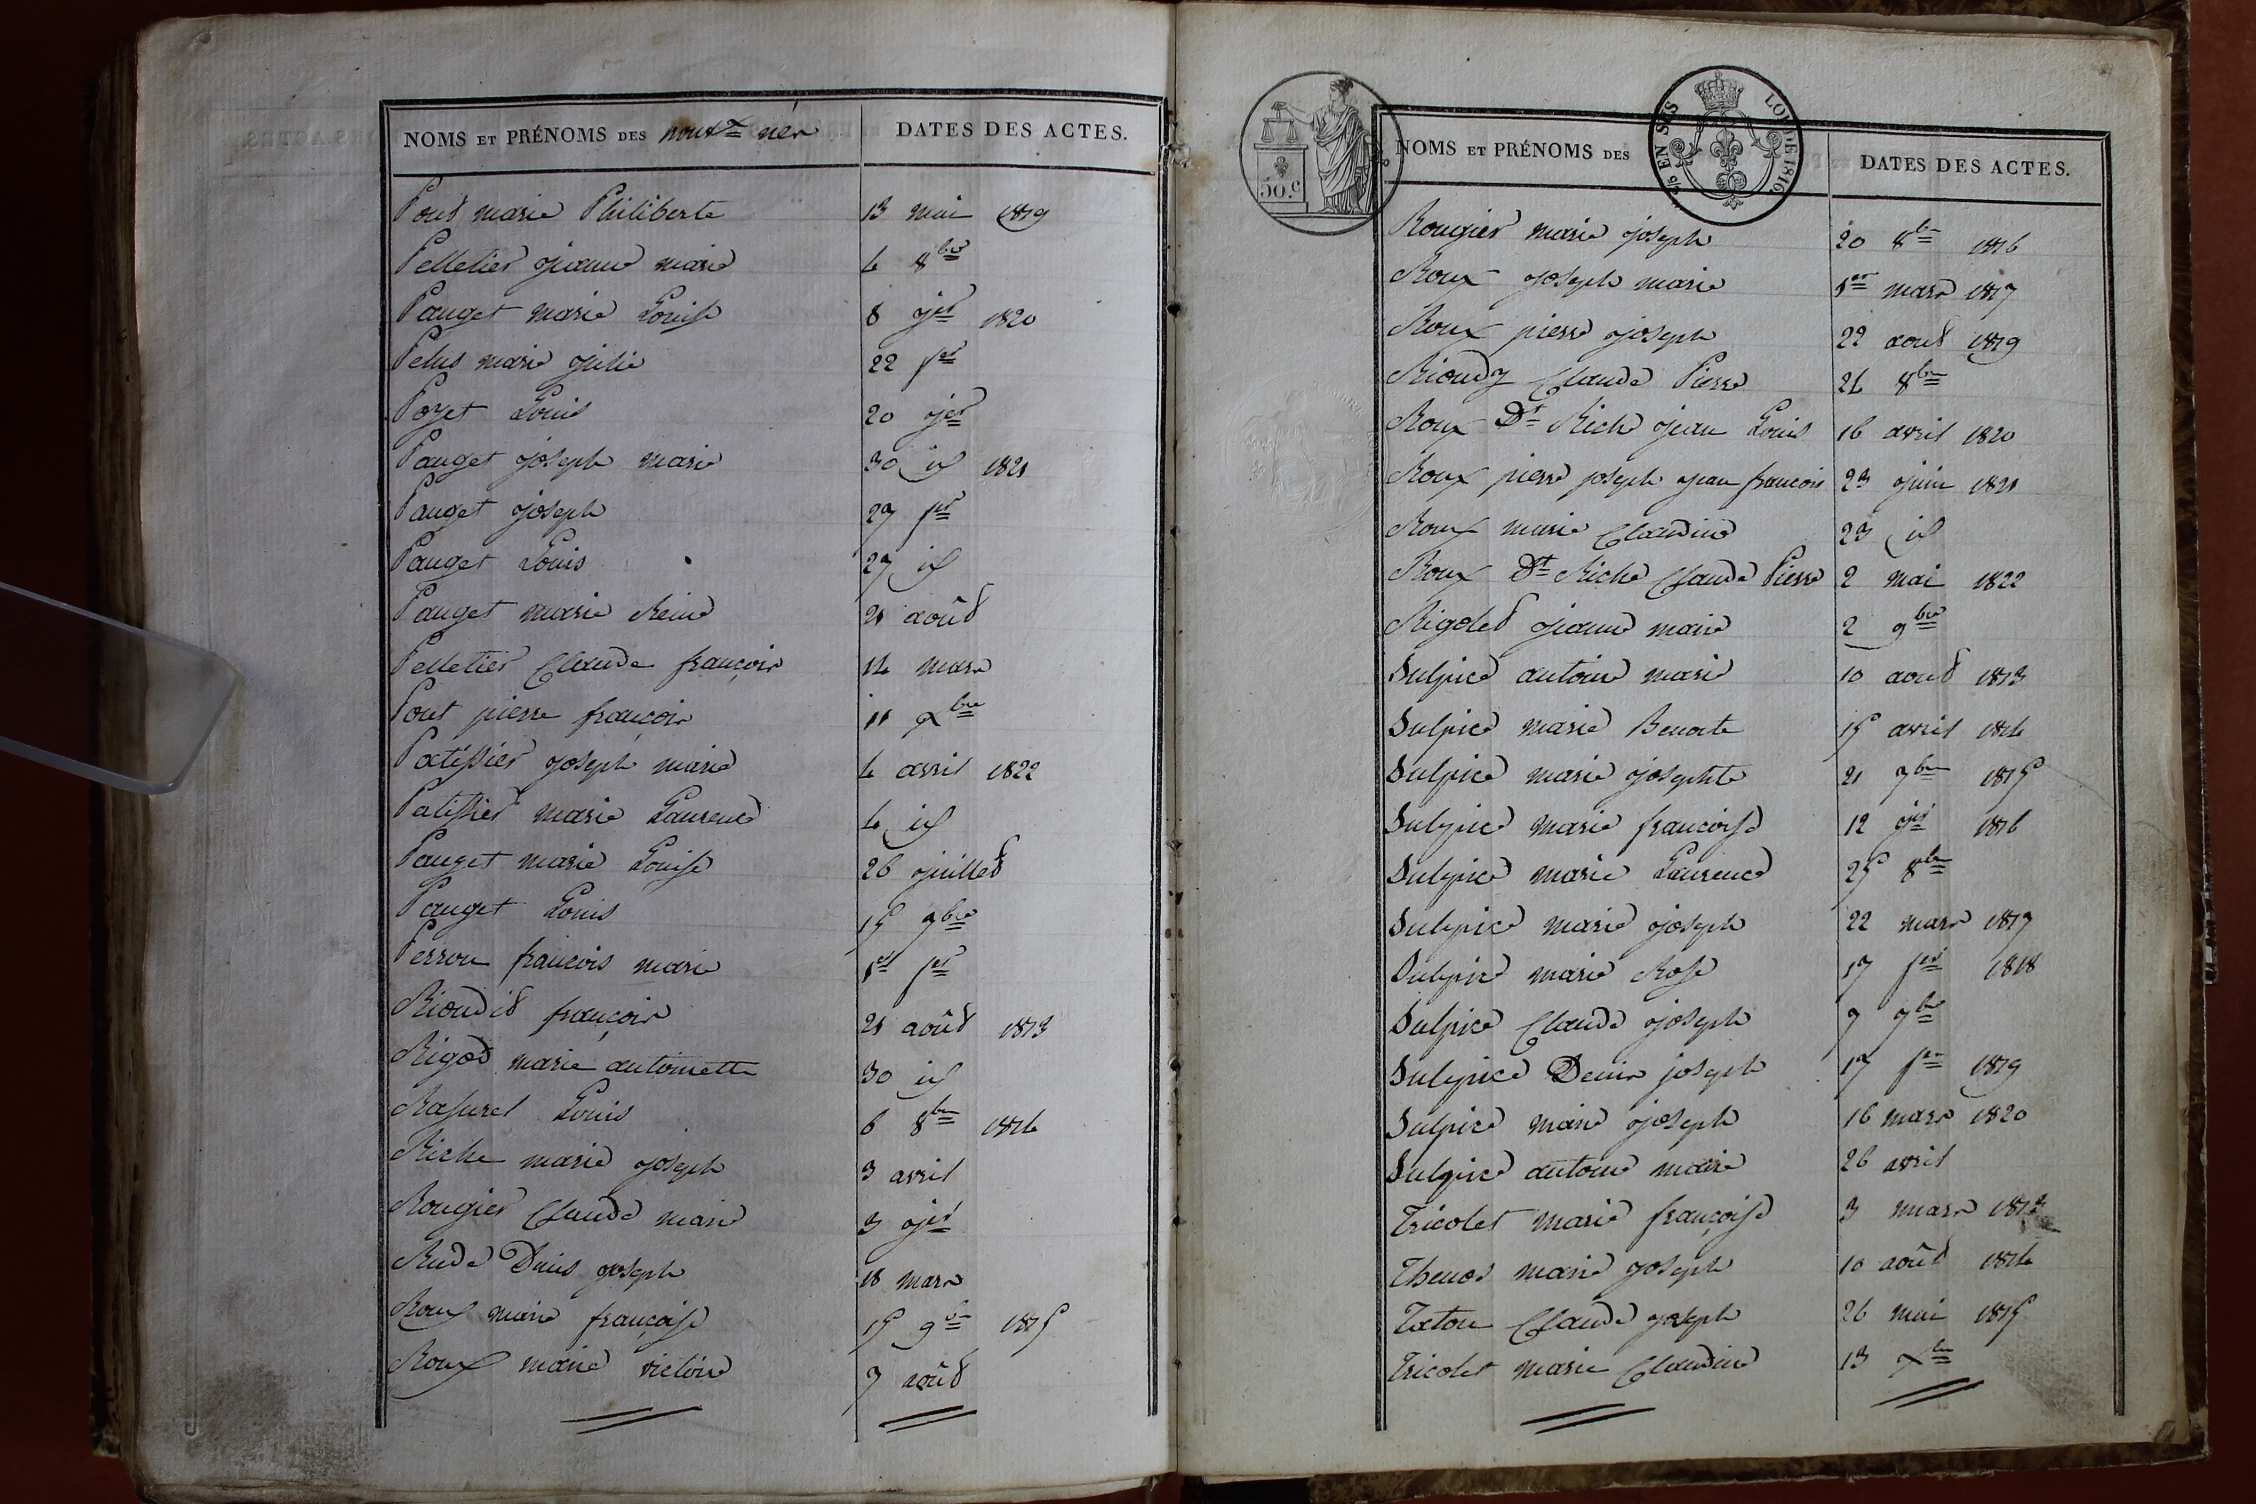 NOMS ET PRÉNOMS DES nouv.x nés DATES DES ACTES.
Pout marie Philiberte 13 mai 1819
Pelletier jeanne marie 4 8bre
Pauget marie Louise 8 jer 1820
Pelus marie julie 22 fer
Poyet Louis 20 jer
Pauget joseph marie 30 id 1821
Pauget joseph 27 fer
Pauget Louis 27 id
Pauget marie Reine 21 août
Pelletier Claude françois 14 mars
Pout pierre françois 11 xbre
Patissier joseph marie 4 avril 1822
Patissier marie Laurence 4 id
Pauget marie Louise 26 juillet
Pauget Louis 15 7bre
Perron françois marie 1er fer
Rioudet françois 21 août 1813
Rigod marie antoinette 30 id
Rasurel Louis 6 8bre 1814
Riche marie joseph 3 avril
Rougier Claude marie 3 jer
Rude Denis joseph 18 mars
Roux marie françoise 15 9bre 1815
Roux marie victoire 7 août
50.c
EN SUS LOI DE 1816
NOMS ET PRÉNOMS DES DATES DES ACTES.
Rougier marie joseph 20 8bre 1816
Roux joseph marie 1er mars 1817
Roux pierre joseph 22 aout 1819
Rioudy Claude Pierre 26 8bre
Roux Dt Riche jean Louis 16 avril 1820
Roux pierre joseph jean françois 23 juin 1821
Roux marie Claudine 23 id
Roux Dt Riche Claude Pierre 2 mai 1822
Rigolet jeanne marie 2 9bre
Sulpice antoine marie 10 aout 1813
Sulpice marie Benoite 15 avril 1814
Sulpice marie josephte 21 7bre 1815
Sulpice marie françoise 12 jer 1816
Sulpice marie Laurence 25 8bre
Sulpice marie joseph 22 mars 1817
Sulpice marie Rose 17 fer 1818
Sulpice Claude joseph 7 9bre
Sulpice Denis joseph 17 fer 1819
Sulpice marie joseph 16 mars 1820
Sulpice antoine marie 26 avril
Tricolet marie françoise 3 mars
Thenod marie joseph 10 août 1814
Taton Claude joseph 26 mai 1815
Tricolet marie Claudine 13 xbre